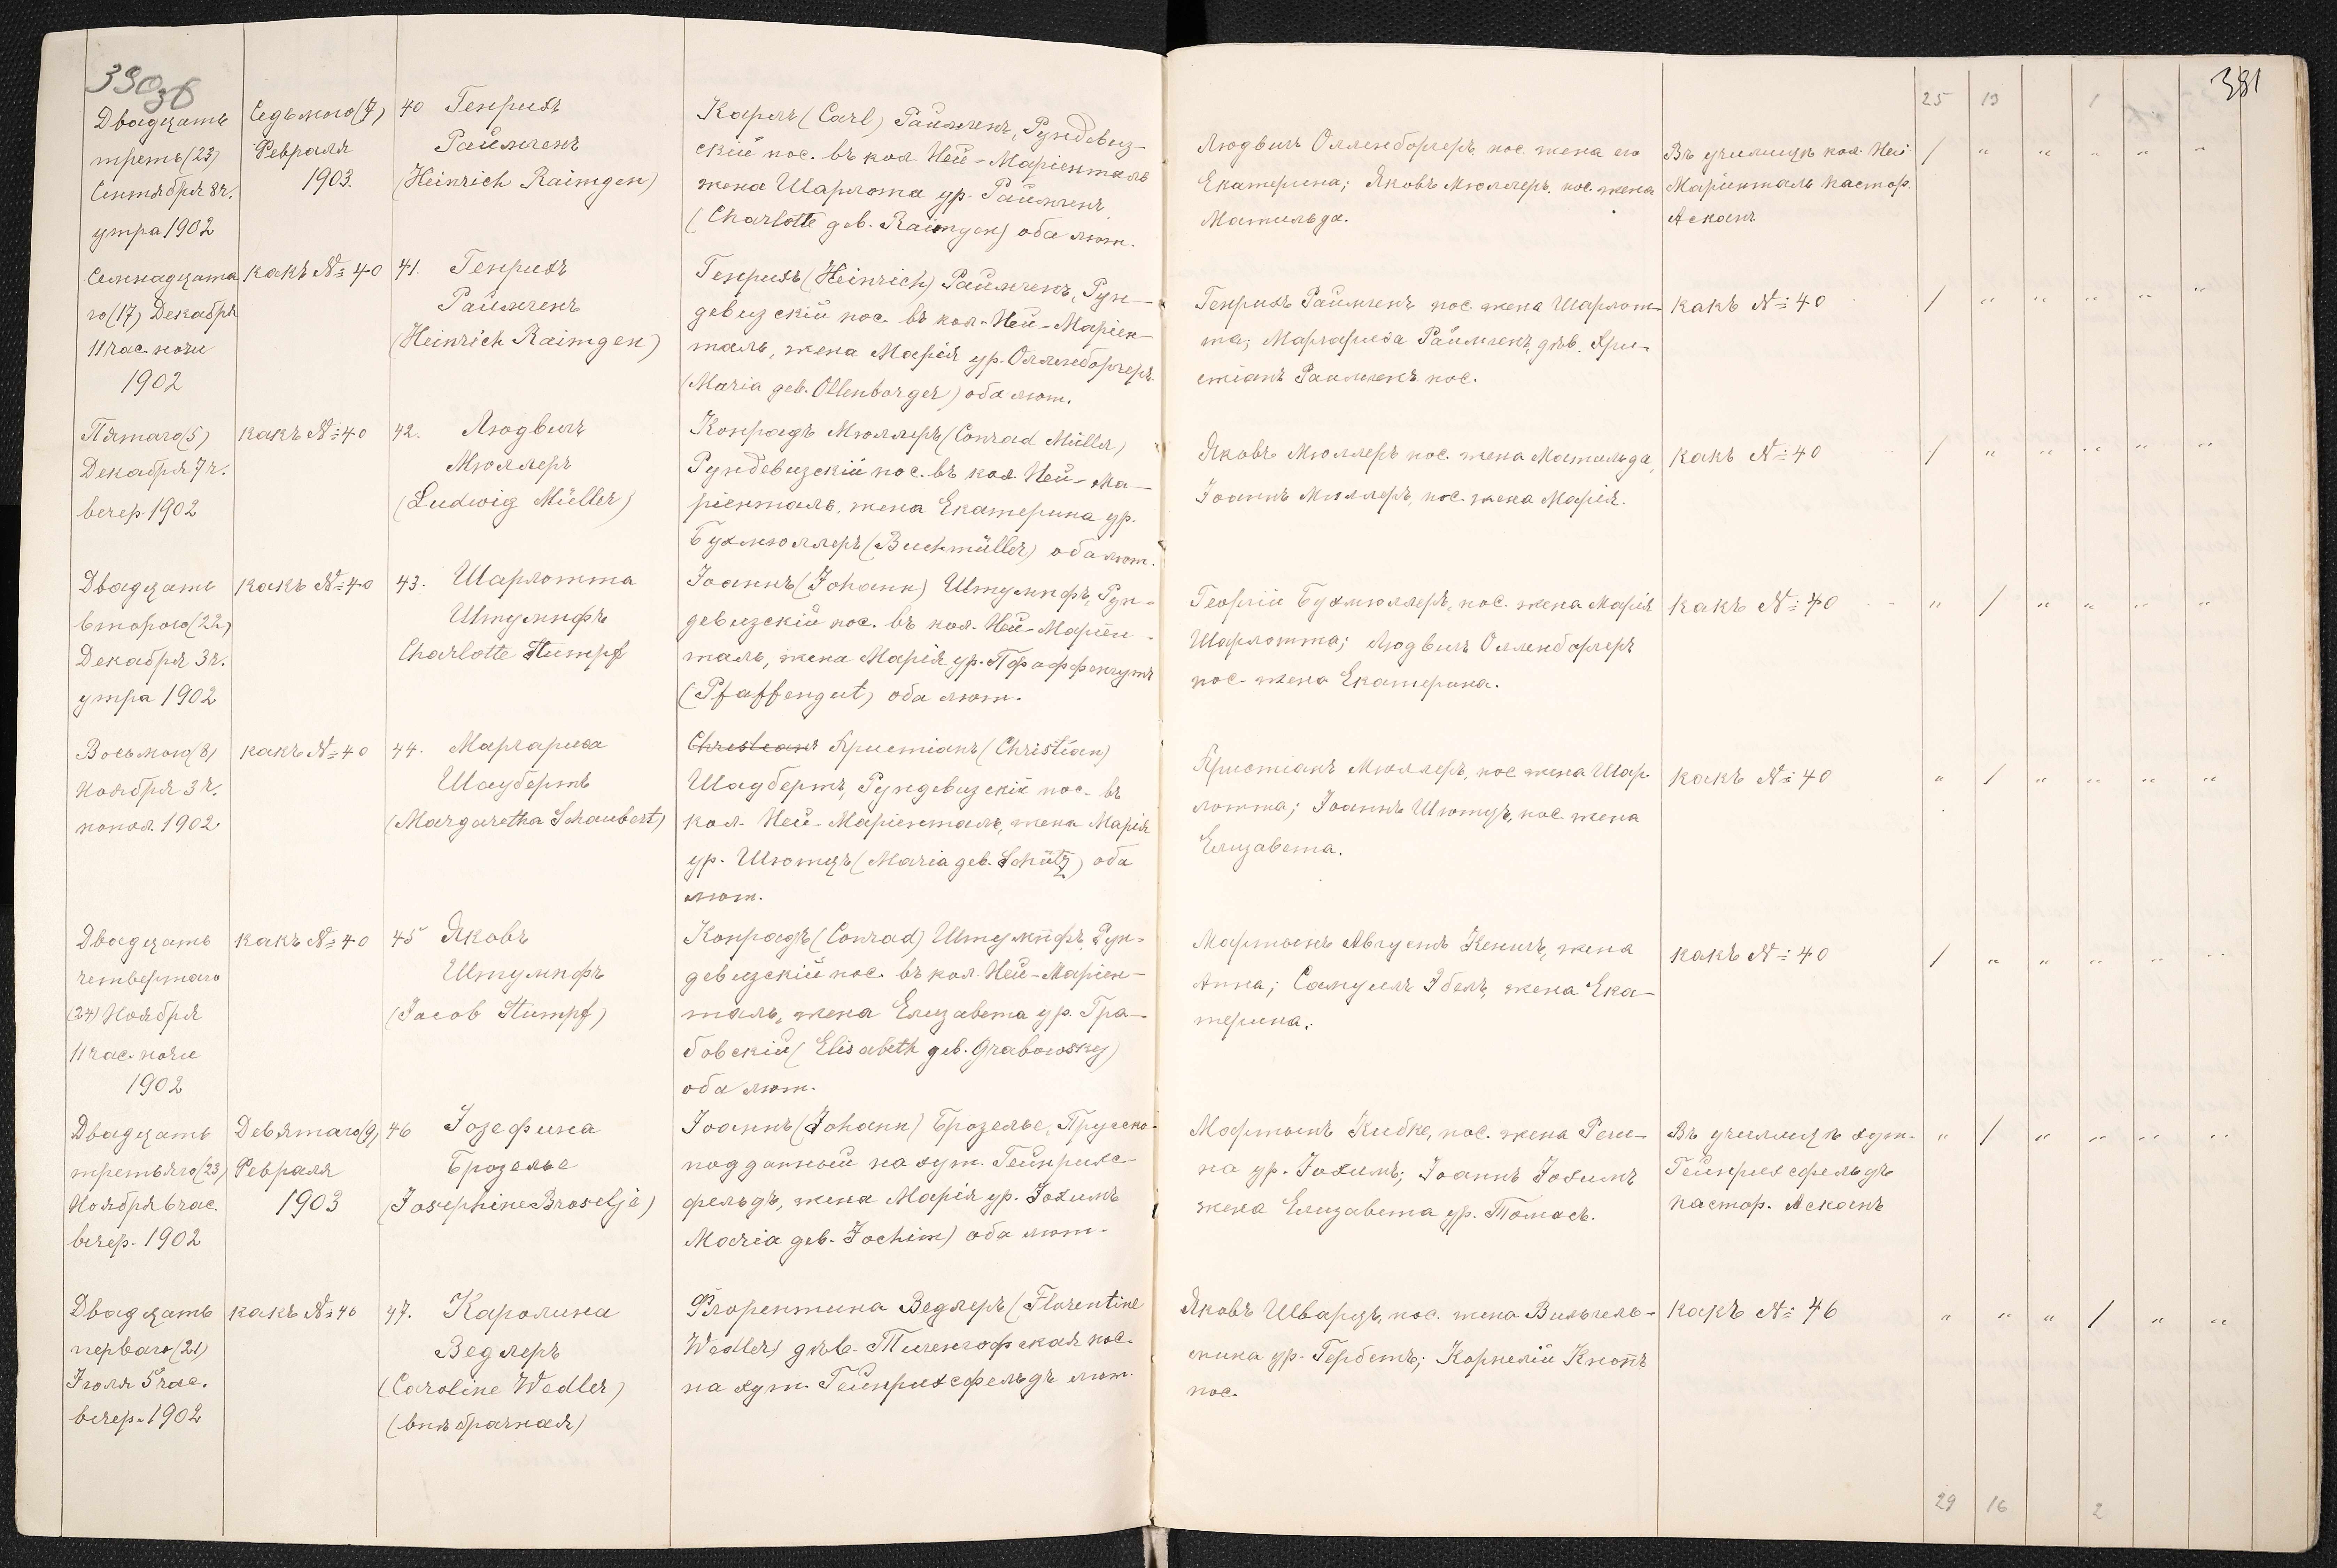 380об
381
25 13 1
Двадцать
третья (23)
Сентября 8 ч.
утра 1902
Седьмого (7)
Февраля
1903.
40 Генрихъ
Раймгенъ
(Heinrich Raimgen)
Карлъ (Carl) Раймгенъ, Рундевиз-
скій пос. въ кол. Ней-Маріенталь
жена Шарлота ур. Раймгенъ
(Charlotte geb. Raimgen) оба лют.
Людвигъ Олленборгеръ пос. жена его
Екатерина; Яковъ Мюллеръ. пос. жена
Матильда.
Въ училищѣ кол. Ней
Маріенталь пастор.
Асканъ
/ " " " " "
Семнадцата
го (17) Декабря
11 час. ночи
1902
какъ № 40
41. Генрихъ
Раймгенъ
(Heinrich Raimgen)
Генрихъ (Heinrich) Раймгенъ, Рун-
девизскій пос. въ кол. Ней-Маріен-
таль, жена Марія ур. Олленборгеръ
(Maria geb. Ollenborger) оба лют.
Генрихъ Раймгенъ пос. жена Шарлот-
та; Маргариѳа Раймгенъ, дѣв. Хри-
стіанъ Раймгенъ пос.
какъ № 40
/ " " " " "
Пятаго (5)
Декабря 7 ч.
вечер. 1902
какъ № 40
42. Людвигъ
Мюллеръ
(Ludwig Müller)
Конрадъ Мюллеръ (Conrad Müller)
Рундевизскій пос. въ кол. Ней-Ма-
ріенталь, жена Екатерина ур.
Бухмюллеръ (Buchmüller) оба лют.
Яковъ Мюллеръ пос. жена Матильда,
Іоаннъ Мюллеръ, пос. жена Марія.
какъ № 40
/ " " " " "
Двадцать
второго (22)
Декабря 3 ч.
утра 1902
какъ № 40
43. Шарлотта
Штумпфъ
Charlotte Stumpf
Іоаннъ (Johann) Штумпфъ, Рун-
девизскій пос. въ кол. Ней-Маріен-
таль, жена Марія ур. Пфаффенгутъ
(Pfaffengut) оба лют.
Георгій Бухмюллеръ, пос. жена Марія
Шарлотта; Людвигъ Олленборгеръ
пос. жена Екатерина.
какъ № 40
" / " " " "
Восьмого (8)
Ноября 3 ч.
попол. 1902
какъ № 40
44. Маргариѳа
Шаубертъ
(Margaretha Schaubert)
Christian Христіанъ (Christian)
Шаубертъ, Рундевизскій пос. въ
кол. Ней-Маріенталь, жена Марія
ур. Шютцъ (Maria geb. Schütz) оба
лют.
Христіанъ Мюллеръ, пос. жена Шар-
лотта; Іоаннъ Шютцъ, пос. жена
Елизавета.
какъ № 40
" / " " " "
Двадцать
четвертаго
(24) Ноября
11 час. ночи
1902
какъ № 40
45 Яковъ
Штумпфъ
(Jacob Stumpf)
Конрадъ (Conrad) Штумпфъ, Рун-
девизскій пос. въ кол. Ней-Маріен-
таль, жена Елизавета ур. Гра-
бовскій (Elisabeth geb. Grabowsky)
оба лют.
Мартынъ Августъ Кенигъ, жена
Анна; Самуилъ Эбель, жена Ека-
терина.
какъ № 40
/ " " " " "
Двадцать
третьяго (23)
Ноября 6 час.
вечер. 1902
Девятаго (9)
Февраля
1903
46 Іозефина
Брозелье
(Josephine Broselje)
Іоаннъ (Johann) Брозелье, Прусско-
подданный на хут. Гейнрихс-
фельдъ, жена Марія ур. Іохимъ
Maria geb. Jochim) оба лют.
Мартынъ Кибке, пос. жена Реги-
на ур. Іохимъ; Іоаннъ Іохимъ
жена Елизавета ур. Томасъ.
Въ училищѣ хут.
Гейнрихсфельдъ
пастор. Асканъ
" / " " " "
Двадцать
перваго (21)
Іюля 5 час.
вечер. 1902
какъ № 46
47. Каролина
Ведлеръ
(Caroline Wedler)
(внѣбрачная)
Флорентина Ведлеръ (Florentine
Wedler) дѣв. Тигенгофская пос.
на хут. Гейнрихсфельдъ лют.
Яковъ Шварцъ, пос. жена Вильгель-
мина ур. Гербетъ; Корнелій Кнопъ
пос.
какъ № 46
" " " / " "
29 16 2